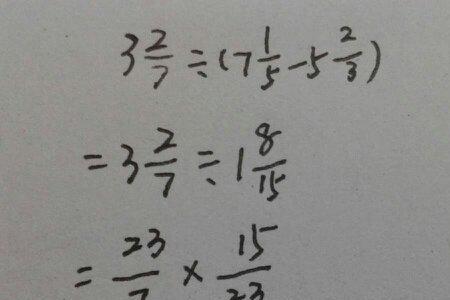 3 2/7 ÷ (7 1/5 - 5 2/3)
= 3 2/7 ÷ 1 8/15
= 23/7 × 15/23